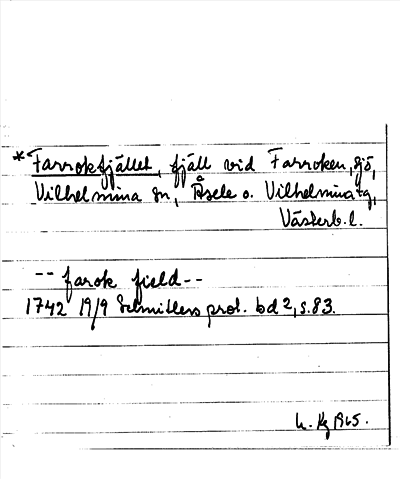 *Farrokfjället, fjäll vid Farroken, sjö,
Vilhelmina sn, Åsele o. Vilhelmina tg,
Västerb. l.
-- farok field --
1742 19/9 Schnitlers prot. bd 2, s. 83.
1965.